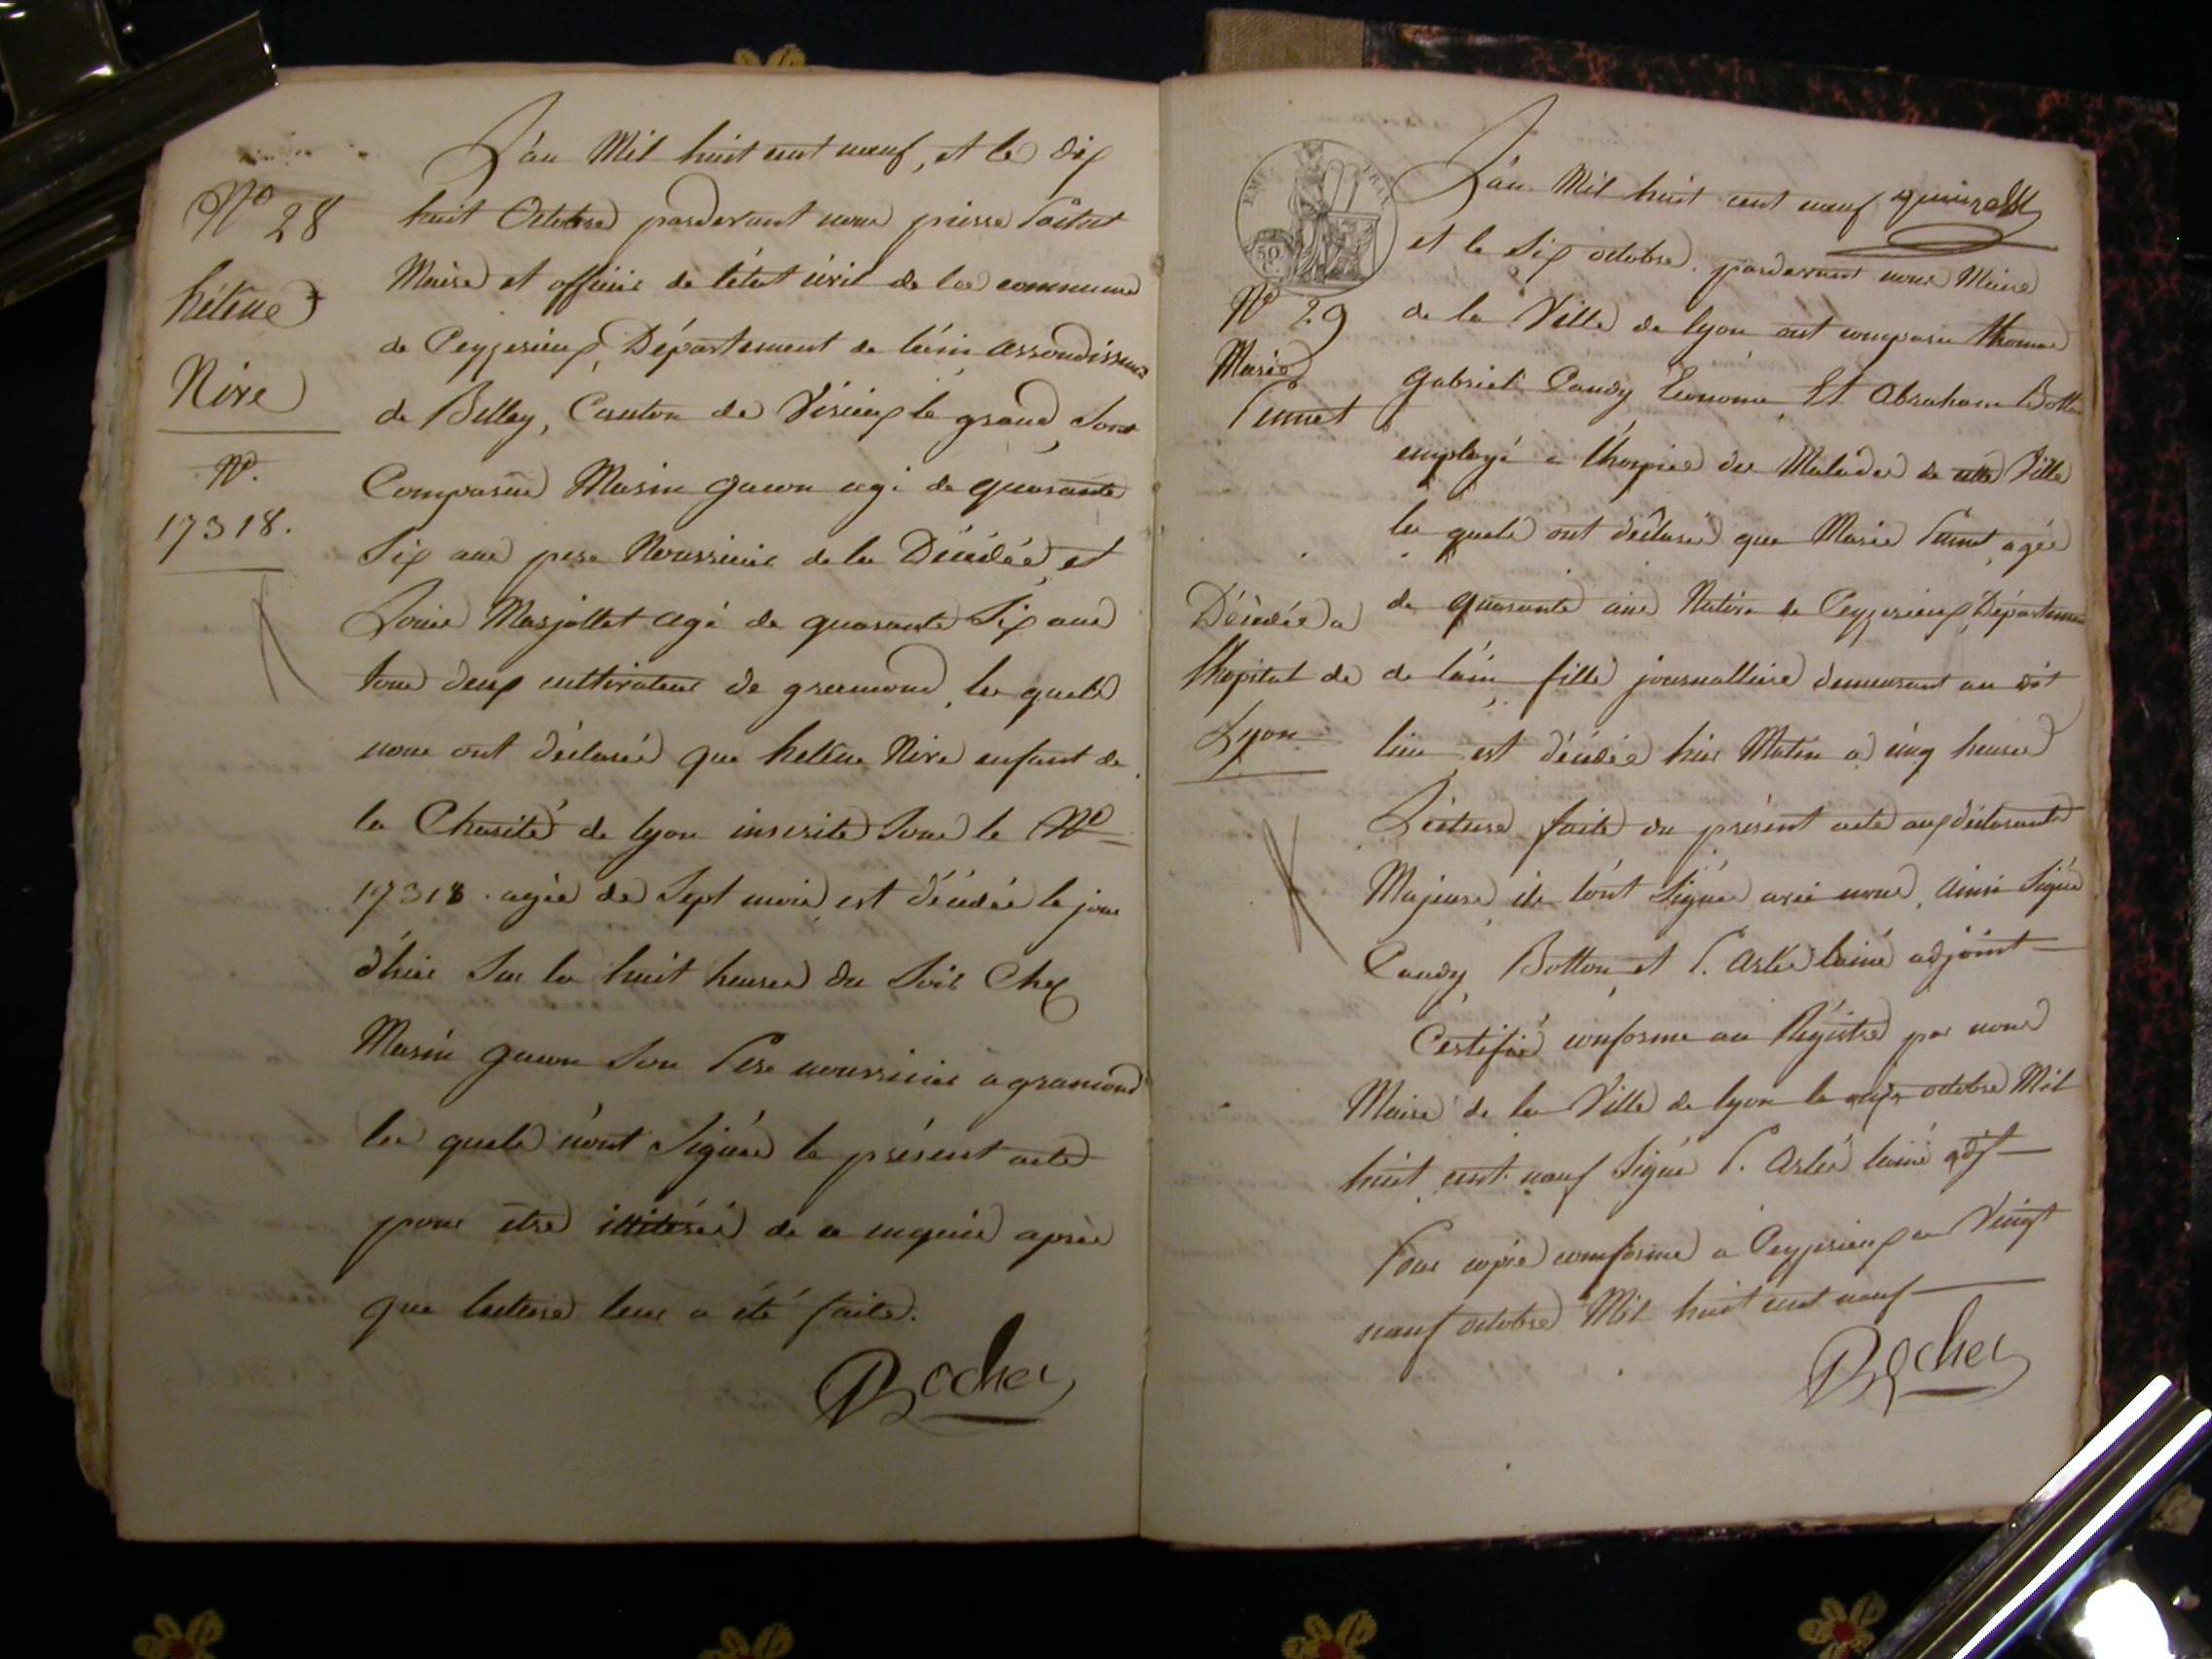 N° 28
héléne
Nire
N°.
17318.
L'an Mil huit cent neuf, et le dix
huit Octobre pardevant nous pierre Poitut
Maire et officier de l'état civil de la commune
de Ceyzerieux, Département de l'ain, arrondissement
de Belley, Canton de Virieux le grand, Sont
Comparus Marin gacon agé de quarante
Six ans pere Nourricier de la Décédée, et
Louis Marjollet agé de quarante Six ans
tous deux cultivateurs de gramond, les quels
nous ont déclarés que heléne Nire enfant de
la Charité de lyon inscrite Sous le N°
17318. agée de Sept mois, est décédée le jour
d'hier Sur les huit heures du Soir Chez
Marin gacon Son Pere nourricier a gramond
les quels n'ont Signés le présent acte
pour être illitérés de ce enquis après
que lecture leur a été faite.
Rocher
EMP. FRAN.
50 C.
N° 29
Marie
Pennet
Décédée a
l'hopital de
Lyon
L'an Mil huit cent neuf
et le Six octobre pardevant nous Maire
de la Ville de lyon ont comparu thomas
gabriel Candy Econome Et Abraham Botton
employé a l'hospice des Malades de cette Ville
les quels ont déclarés que Marie Pennet, agée
de quarante ans Native de Ceyzerieux, Département
de l'ain fille journalliere demeurant au dit
lieu est décédée hier Matin a cinq heures
Lecture faite du présent acte aux déclarants
Majeurs, ils l'ont Signés avec nous, ainsi Signés
Candy Botton et P. l'ainé adjoint
Certifié conforme au Régistre par nous
Maire de la Ville de lyon le octobre Mil
huit cent neuf Signé P. l'ainé adjt
Pour copie conforme a Ceyzerieux ce Vingt
neuf octobre Mil huit cent neuf
Rocher